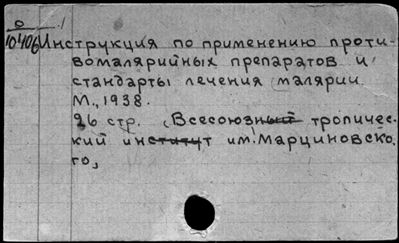 0 1
10406 Инструкция по применению проти-
вомалярийных препаратов и
стандарты лечения малярии.
М., 1938.
26 стр. (Всесоюзный тропичес-
кий институт им. Марциновско-
го)